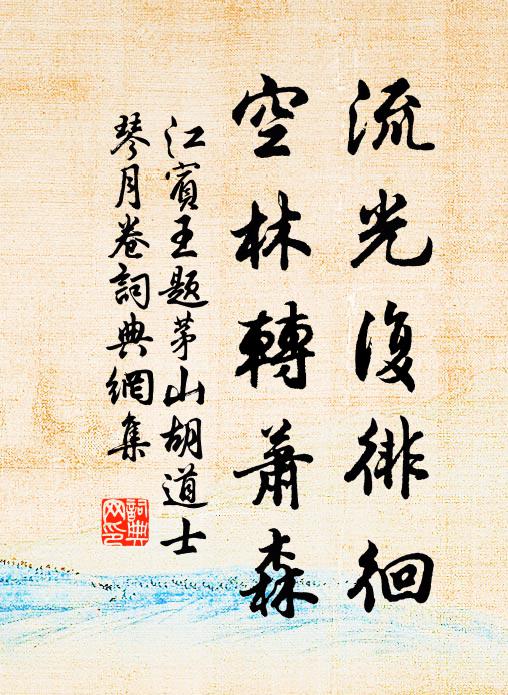 流光復徘徊
空林轉蕭森
江賓王題茅山胡道士
琴月卷詞典網集
詞典
网印